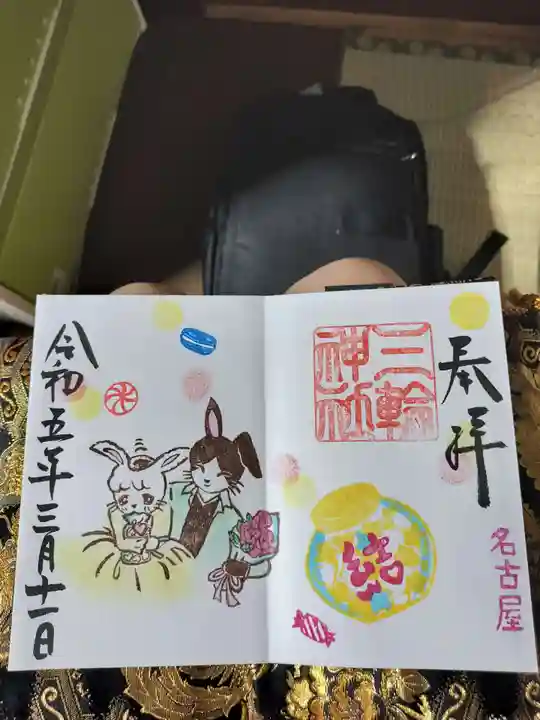 奉拝
名古屋
三輪
神社
結
令和五年三月十一日